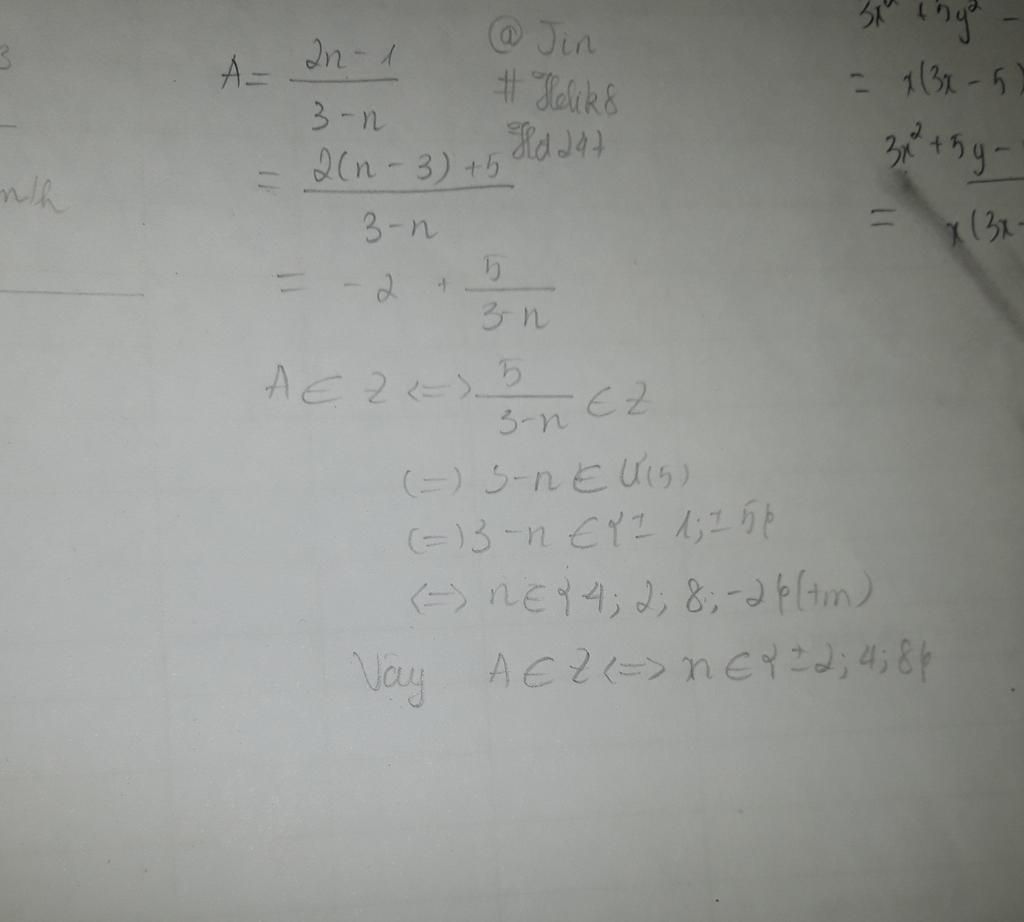 3
A = \frac{2n - 1}{3 - n}
@ Jin
# Helik8
Hd247
= \frac{2(n - 3) + 5}{3 - n}
= - 2 + \frac{5}{3 - n}
A ∈ Z <=> \frac{5}{3 - n} ∈ Z
(=) 3 - n ∈ Ư(5)
(=) 3 - n ∈ { ± 1; ± 5}
<=> n ∈ { 4; 2; 8; -2 } (tm)
Vậy A ∈ Z <=> n ∈ { ± 2; 4; 8 }
= x(3x - 5)
3x² + 5y -
= x(3x -